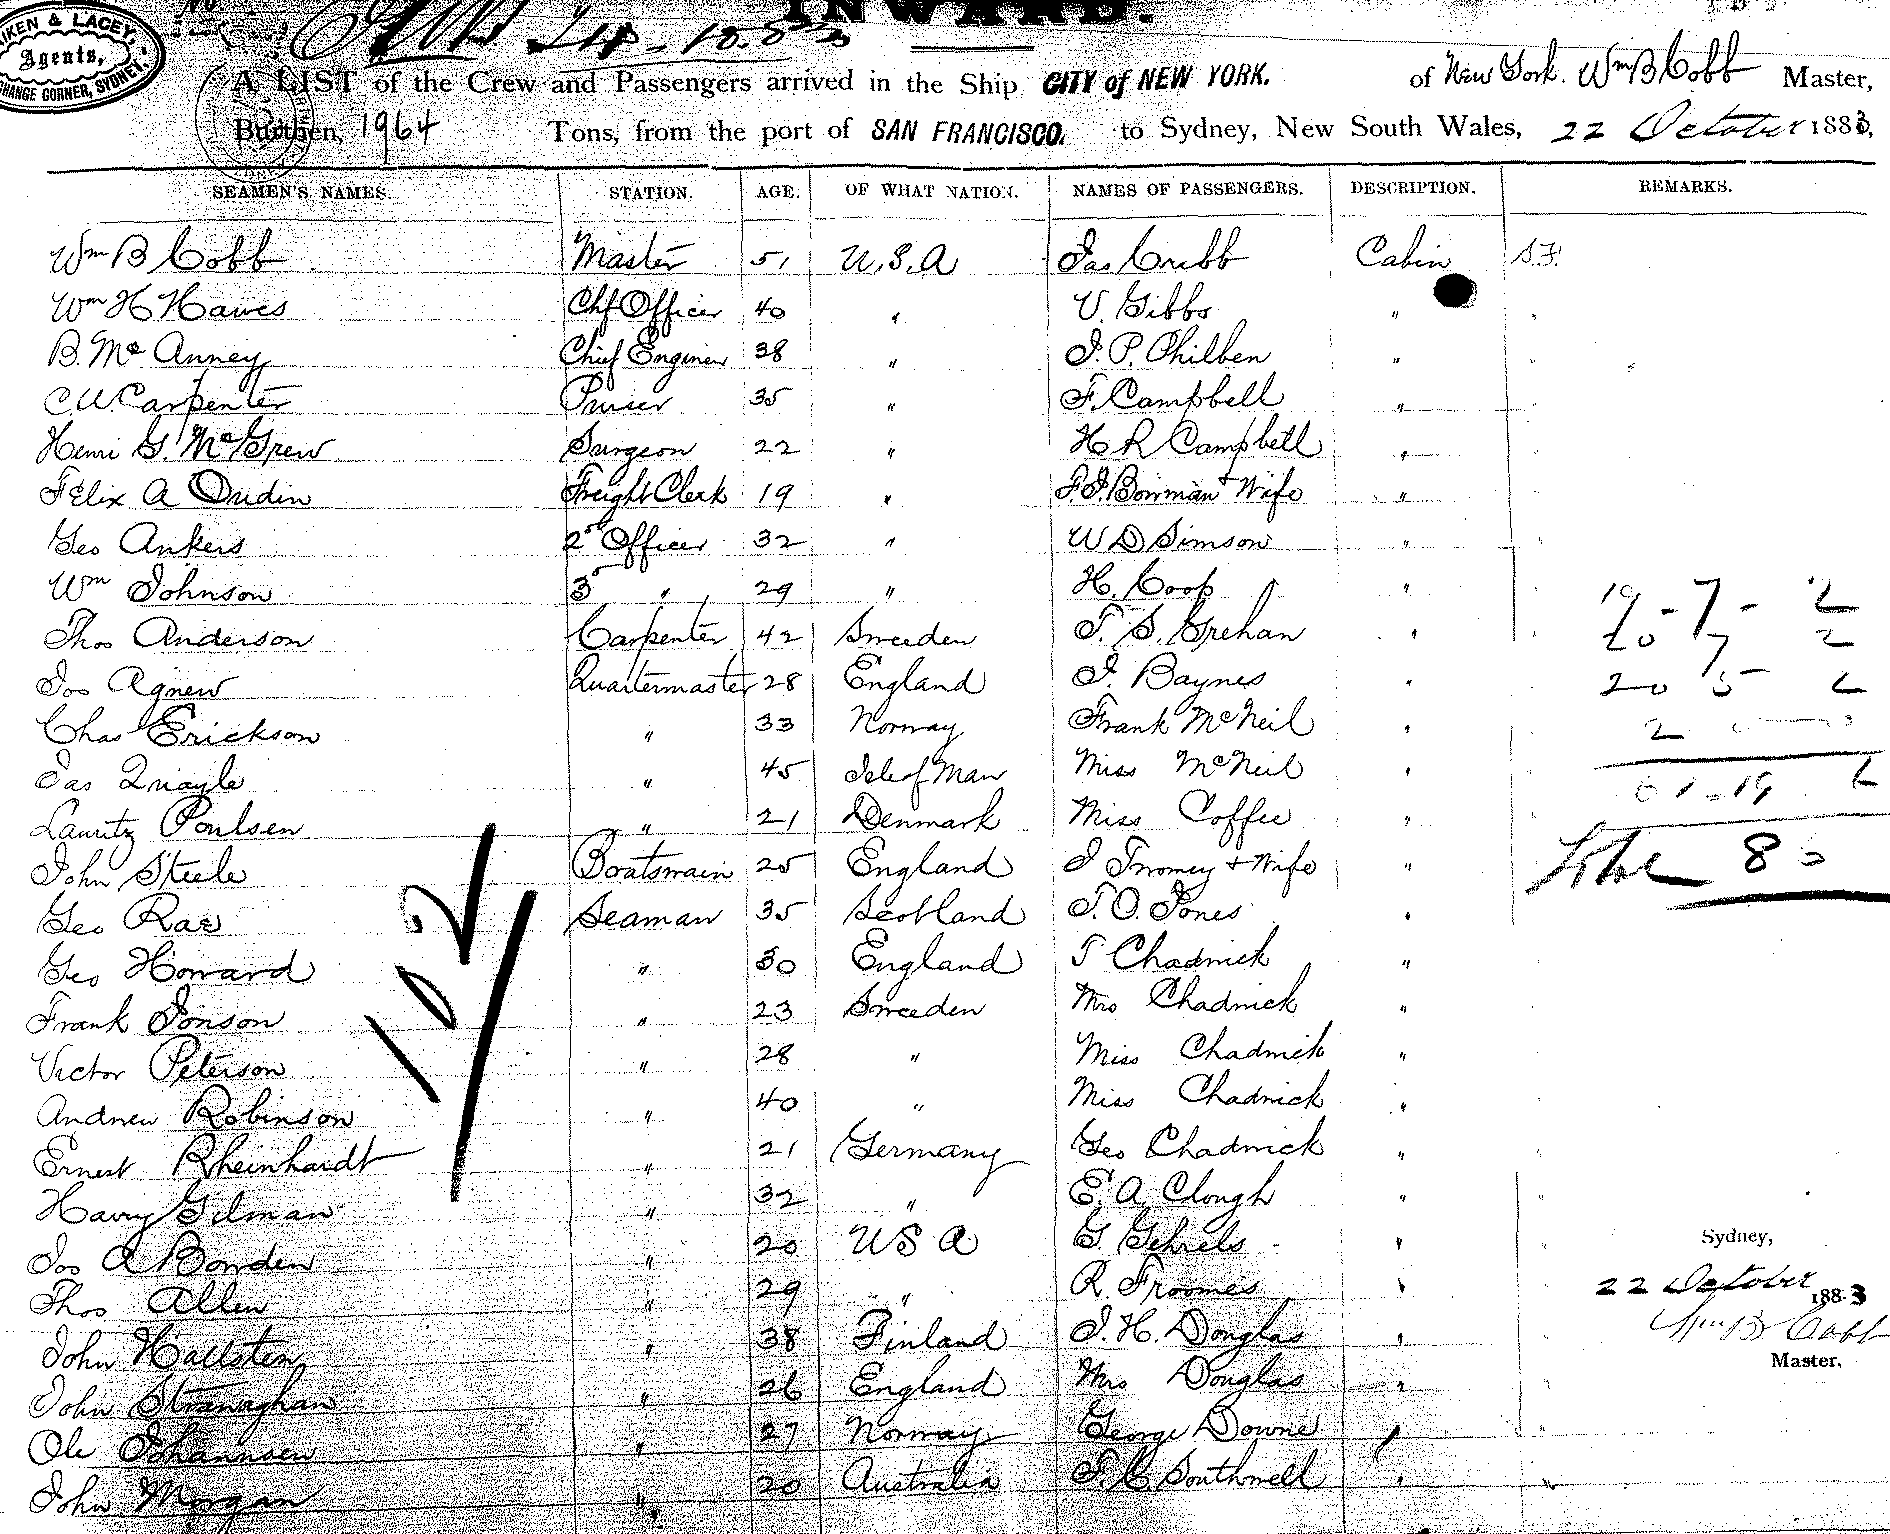 INWARD.
AIKEN & LACEY,
Agents,
CHANGE CORNER, SYDNEY.
A LIST of the Crew and Passengers arrived in the Ship CITY of NEW YORK. of New York. Wm B Cobb Master,
Burthen, 1964 Tons, from the port of SAN FRANCISCO. to Sydney, New South Wales, 22 October 1883,
SEAMEN'S NAMES. STATION. AGE. OF WHAT NATION. NAMES OF PASSENGERS. DESCRIPTION. REMARKS.
Wm B Cobb Master 51 U.S.A Jas Cribb Cabin S.F.
Wm H Hawes Chf Officer 40 " V. Gibbs " "
B. Mc Anney Chief Enginer 38 " J. P. Philben " "
C.W. Carpenter Purser 35 " F. Campbell " "
Henri G. McGrew Surgeon 22 " H R Campbell " "
Felix A Oudin Freight Clerk 19 " F. J. Bowman + Wife " "
Geo Ankers 2d Officer 32 " W D Simson " "
Wm Johnson 3d " 29 " H. Coop " "
Thos Anderson Carpenter 42 Sweeden T. S. Grehan " "
Jos Agnew Quartermaster 28 England J. Baynes " "
Chas Erickson " 33 Norway Frank McNeil "
Jas Quayle " 45 Isle of Man Miss McNeil "
Lauritz Poulsen " 21 Denmark Miss Coffee "
John Steele Boatswain 25 England J Twomey + Wife " Total
Geo Rae Seaman 35 Scotland T. O. Jones "
Geo Howard " 30 England T Chadwick "
Frank Jonson " 23 Sweeden Mrs Chadwick "
Victor Peterson " 28 " Miss Chadwick "
Andrew Robinson " 40 " Miss Chadwick "
Ernest Rheinhardt " 21 Germany Geo Chadwick "
Harry Gilman " 32 " E. A. Clough " "
Jos A Bowden " 20 USA G. Gehrels " "
Thos Allen " 29 " R. Froomes "
John Hallsten " 38 Finland J. H. Douglas " "
John Stranaghan " 26 England Mrs Douglas " "
Ole Johannsen " 27 Norway George Downe " "
John Morgan " 20 Australia F. C Southwell " "
102
19 - 7 - 2
20 7 2
20 5 2
2
61 - 19 2
Sydney,
22 October 1883
Wm B Cobb
Master.